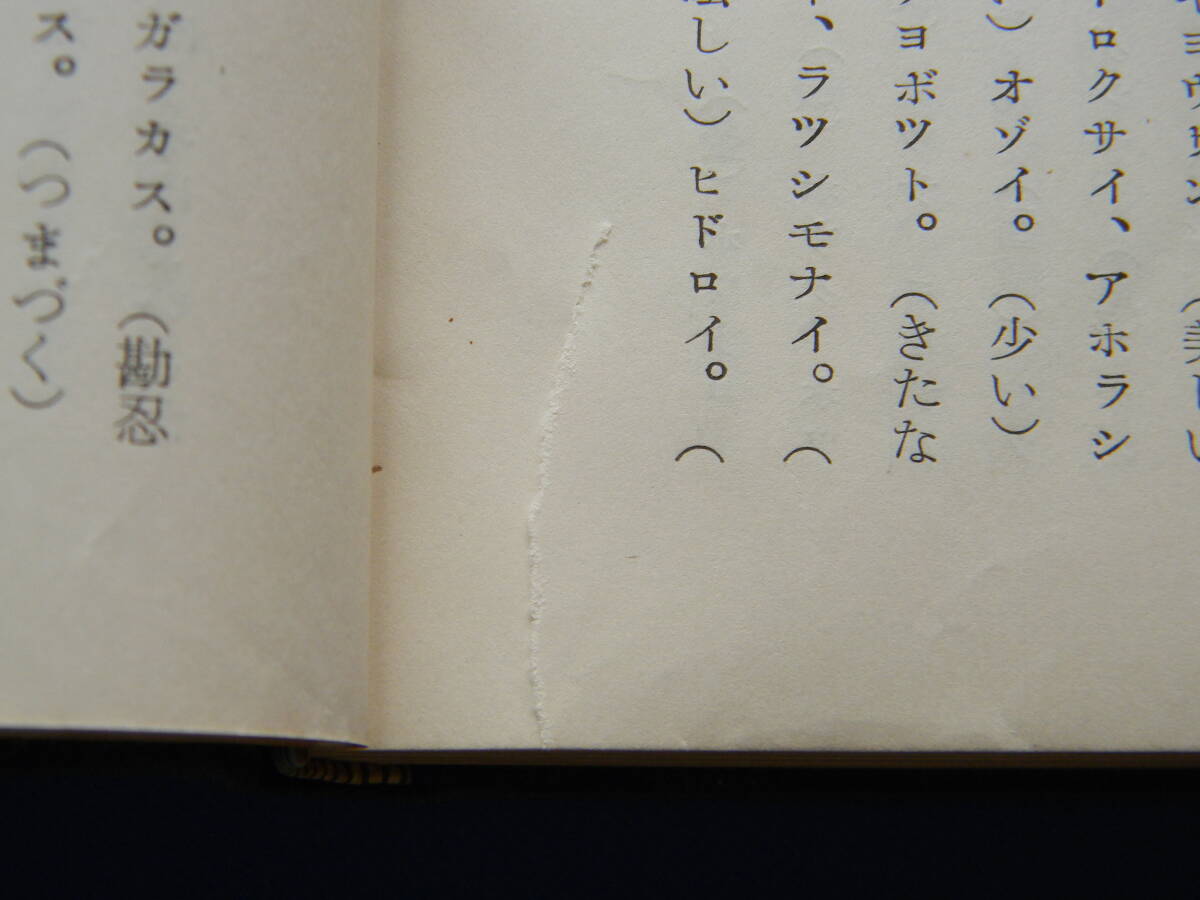 ヨウリン
(美しい
ロクサイ、アホラシ
)オゾイ。(少い)
ョボツト。(きたな
、ラツシモナイ。(
しい)ヒドロイ。(
ガラカス。(勘忍
ス。(つまづく)